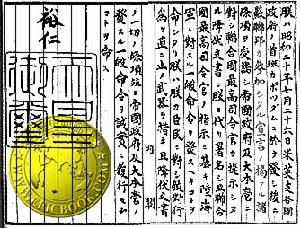 朕ハ昭和二十年七月二十六日米英支各國
政府ノ首班カポツダムニ於テ發シ後ニ
蘇聯邦カ參加シタル宣言ノ掲クル諸
條項ヲ受諾シ帝國政府及大本營ニ
對シ聯合國最高司令官カ提示シタ
ル降伏文書ニ朕ニ代リ署名シ且聯合
國最高司令官ノ指示ニ基キ陸海
軍ニ對スル一般命令ヲ發スヘキコトヲ
命シタリ朕ハ朕カ臣民ニ對シ敵對行
爲ヲ直ニ止メ武器ヲ措キ且降伏文書
ノ一切ノ條項竝ニ帝國政府及大本營ノ
發スル一般命令ヲ誠實ニ履行セム
コトヲ命ス
裕仁
天皇
御璽